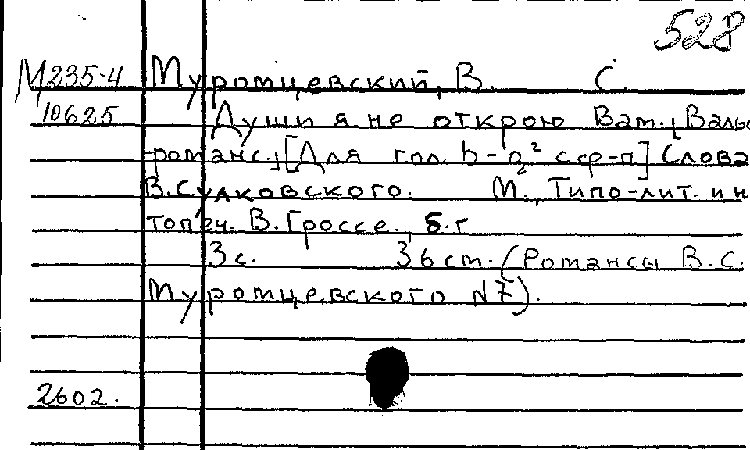 528
М235-4 Муромцевский, В. С.
10625 Души я не открою Вам., Вальс
-романс., [Для гол. h-g² с ср-п] Слова
В. Сулковского. М., Типо-лит. и н
топеч. В. Гроссе., б.г
3 с. 36 ст. (Романсы В.С.
Муромцевского N7).
2602.